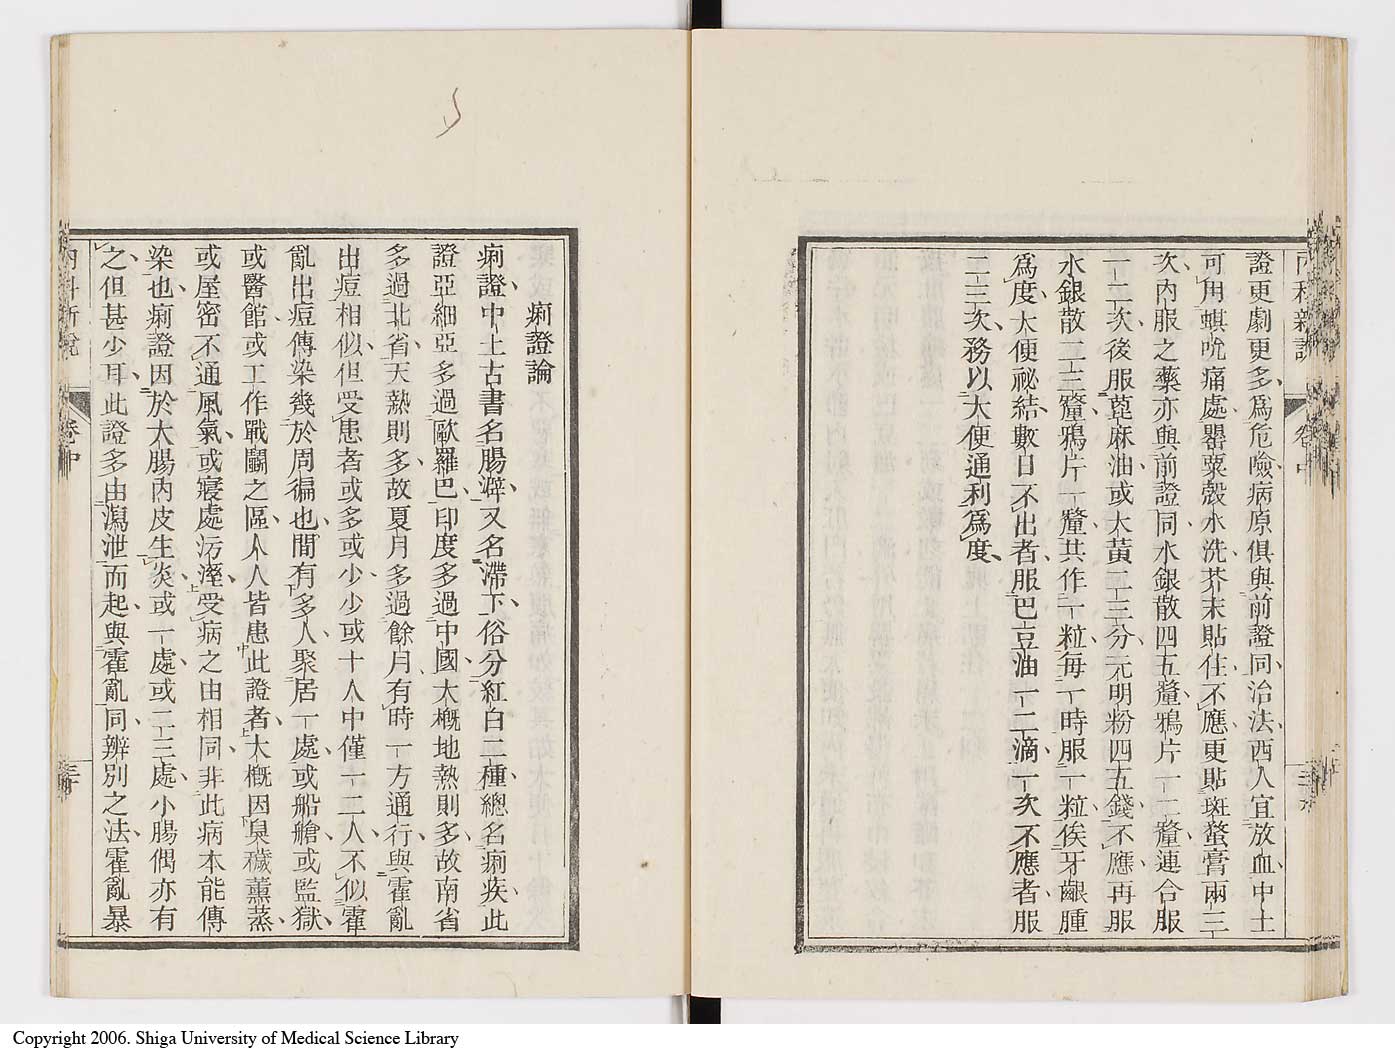 內科新說
卷中
證更劇更多爲危險病原俱與前證同治法西人宜放血中土
可用蜞吮痛處罌粟殼水洗芥末貼住不應更貼斑蝥膏兩三
次內服之藥亦與前證同水銀散四五釐鴉片一二釐連合服
一二次後服蓖麻油或大黃二三分元明粉四五錢不應再服
水銀散二三釐鴉片一釐共作一粒每一時服一粒俟牙齦腫
爲度大便祕結數日不出者服巴豆油一二滴一次不應者服
二三次務以大便通利爲度
痢證論
痢證中土古書名腸澼又名滯下俗分紅白二種總名痢疾此
證亞細亞多過歐羅巴印度多過中國大槪地熱則多故南省
多過北省天熱則多故夏月多過餘月有時一方通行與霍亂
出痘相似但受患者或多或少少或十人中僅一二人不似霍
亂出痘傳染幾於周徧也間有多人聚居一處或船艙或監獄
或醫館或工作戰鬬之區人人皆患此證者大槪因臭穢薰蒸
或屋密不通風氣或寢處污溼受病之由相同非此病本能傳
染也痢證因於大腸內皮生炎或一處或二三處小腸偶亦有
之但甚少耳此證多由瀉泄而起與霍亂同辨別之法霍亂暴
內科新說
卷中
Copyright 2006. Shiga University of Medical Science Library